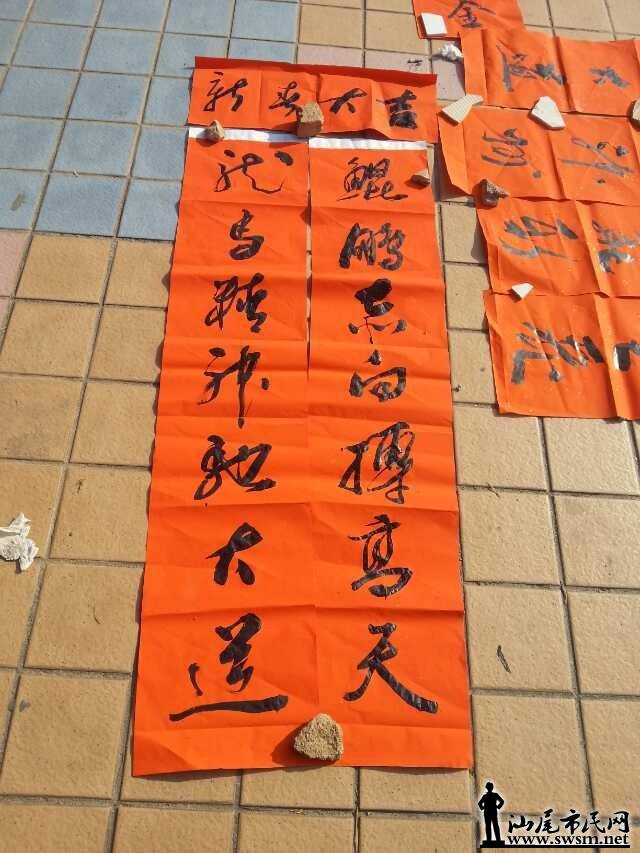 新春大吉
鲲鹏志向搏高天
龙马精神驰大道
金
汕尾市民网
www.swsm.net